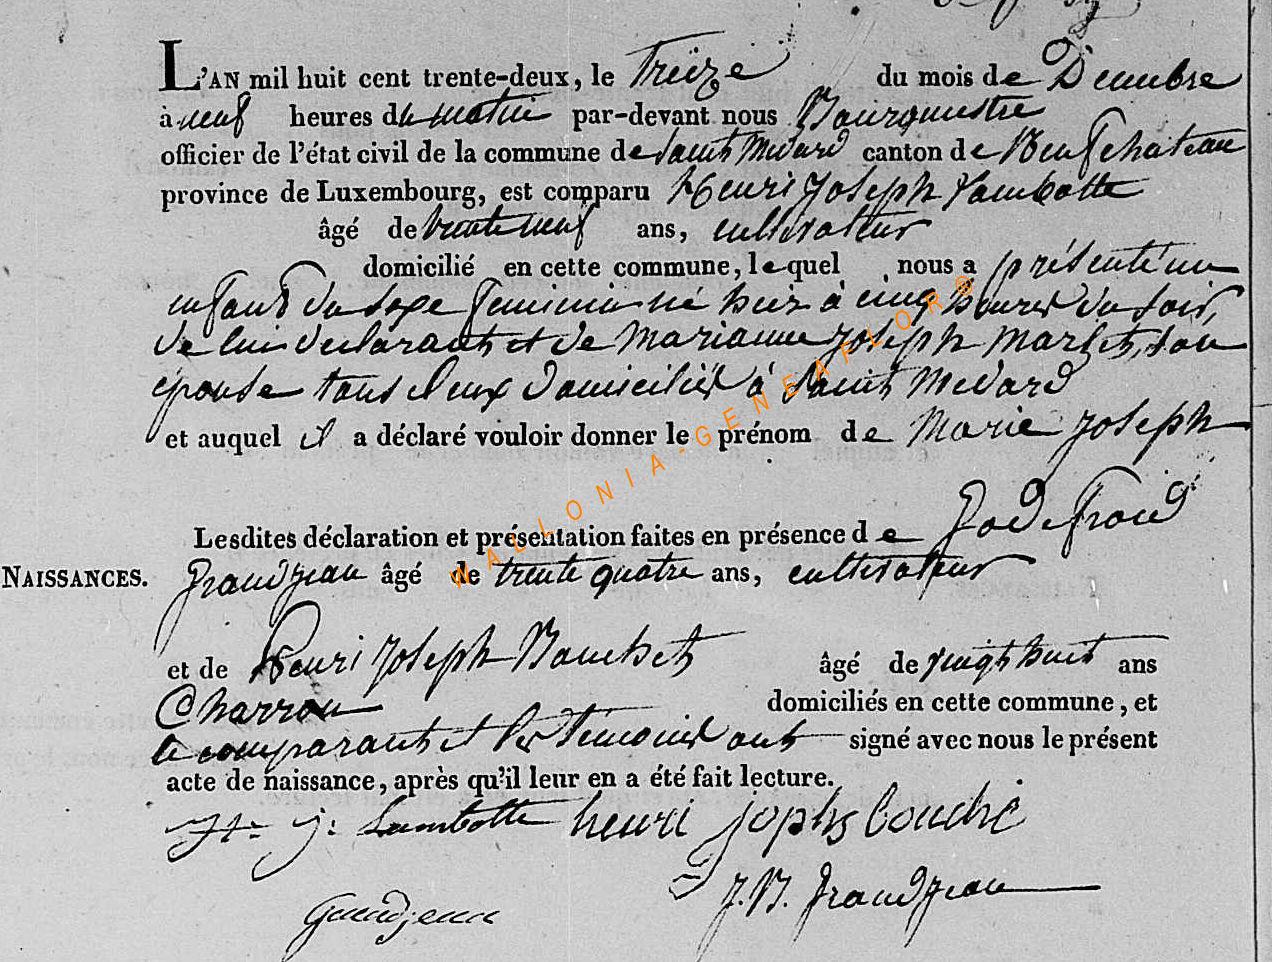 L'AN mil huit cent trente-deux, le Treize du mois de Decembre
à neuf heures du matin par-devant nous Bourgmestre
officier de l'état civil de la commune de Saint Médard canton de Neufchateau
province de Luxembourg, est comparu Henri Joseph Lambotte
âgé de trente neuf ans, cultivateur
domicilié en cette commune, lequel nous a présenté un
enfant du sexe feminin né hier à cinq heures du soir,
de lui declarant et de Marianne Joseph son
epouse tous deux domiciliés à Saint Médard
et auquel il a déclaré vouloir donner le prénom de Marie Joseph
Lesdites déclaration et présentation faites en présence de Godefroid
NAISSANCES. Grandjean âgé de trente quatre ans, cultivateur
et de Henri Joseph Bouchet âgé de vingt huit ans
Charron domiciliés en cette commune, et
le comparant et les temoins ont signé avec nous le présent
acte de naissance, après qu'il leur en a été fait lecture.
H: j: Lambotte henri jophs bouché
J. B. Grandjean
Grandjean
WALLONIA-GENEAFLOR®